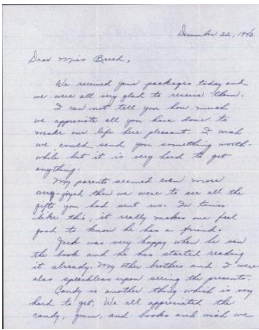 December 22, 1942.
Dear Miss Breed,
We received your packages today and
we were all very glad to receive them.
I can not tell you how much
we appreciate all you have done to
make our life here pleasant. I wish
we could send you something worth-
while but it is very hard to get
anything.
My parents seemed even more
overjoyed than we were to see all the
gifts you had sent us. In times
like this, it really makes one feel
good to know he has a friend.
Jack was very happy when he saw
the book and he has started reading
it already. My other brothers and I were
also speechless upon seeing the presents.
Candy is another thing which is very
hard to get. We all appreciated the
candy, gum, and books and wish we